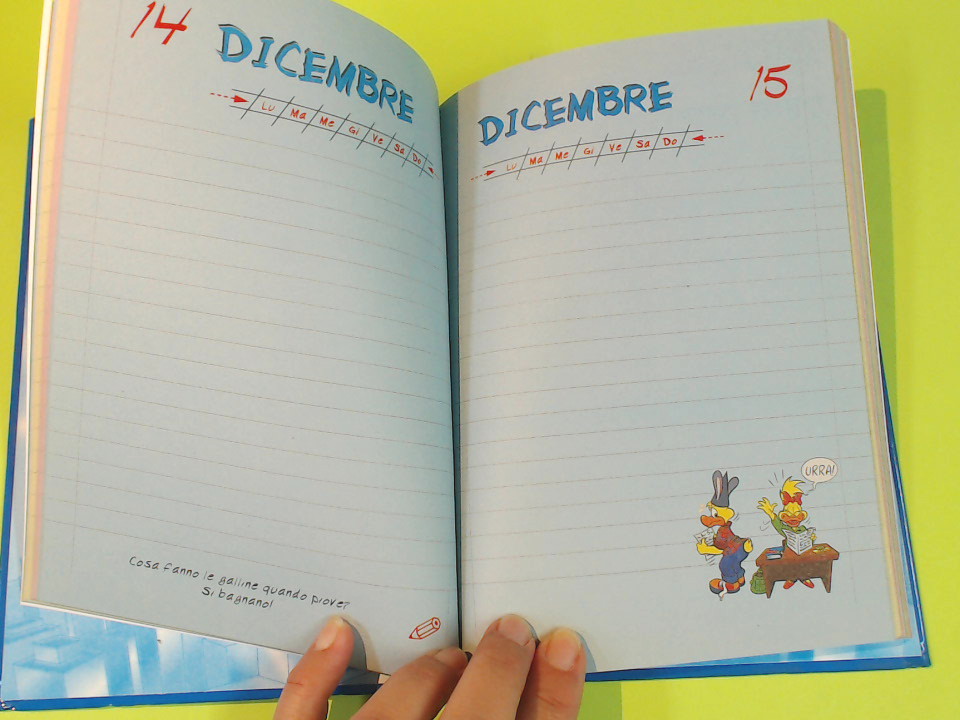 14
DICEMBRE
Lu Ma Me Gi Ve Sa Do
Cosa fanno le galline quando piove?
Si bagnano!
DICEMBRE
15
Lu Ma Me Gi Ve Sa Do
URRA!